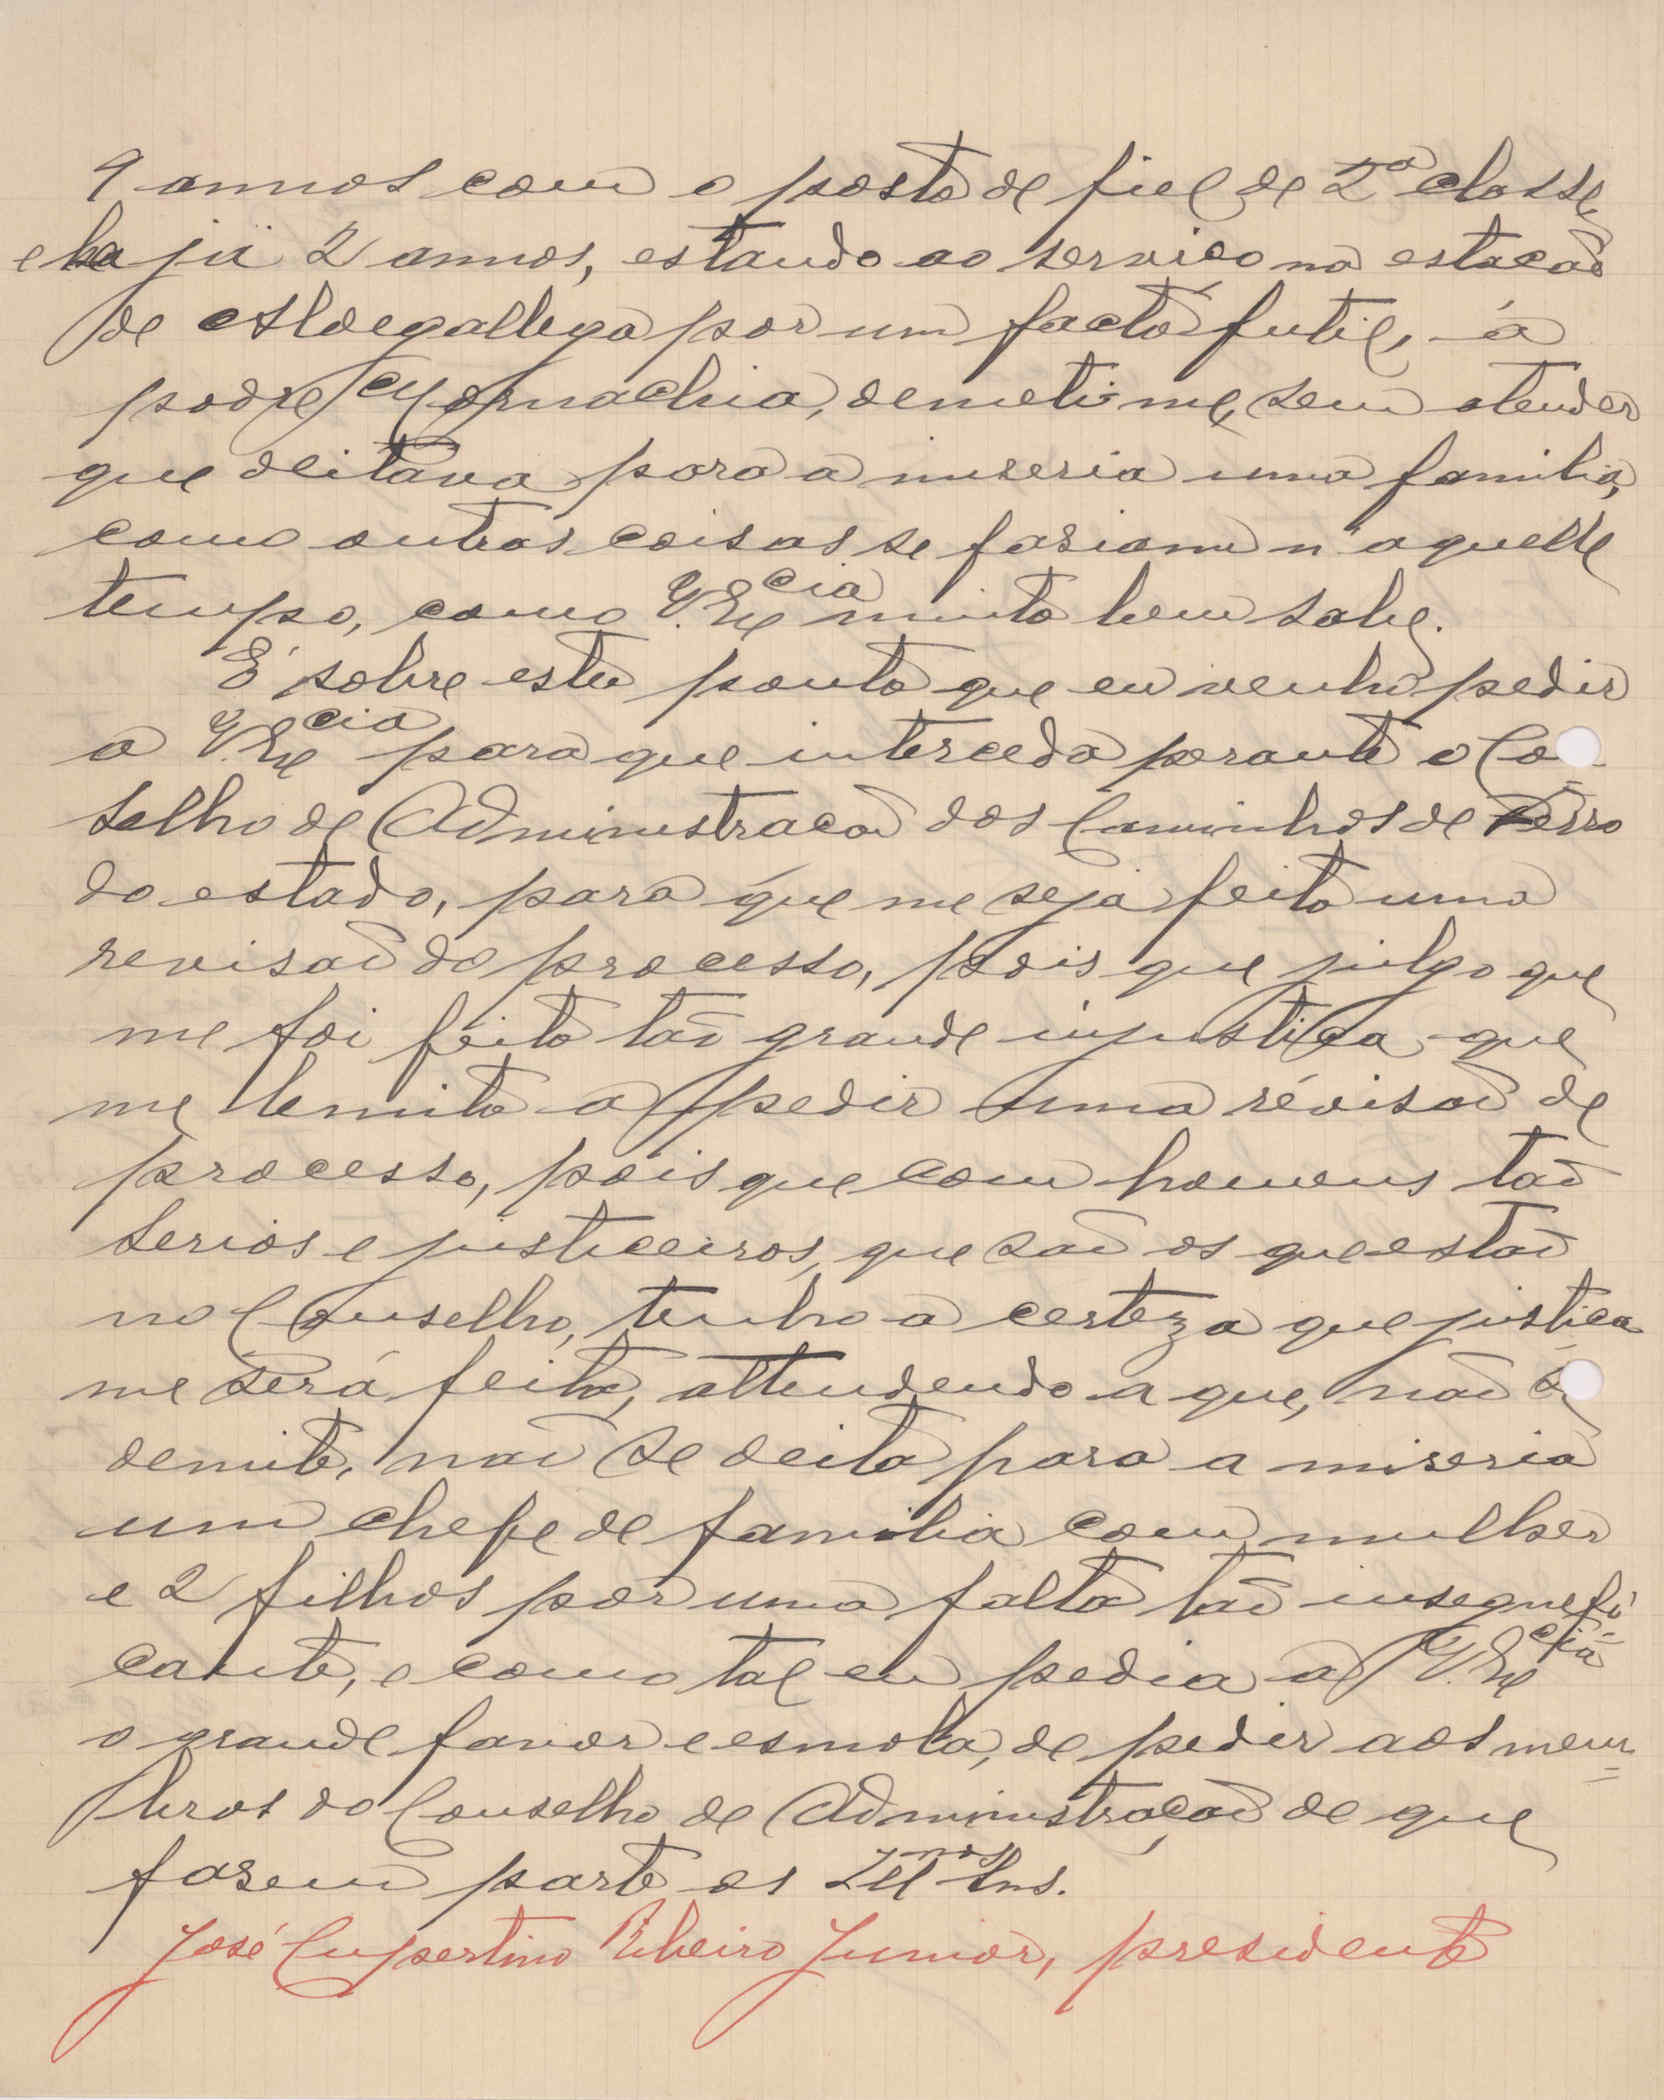 9 annos com o posto de fiel de 2ª classe,
e ha já 2 annos, estando ao serviço na estação
de Aldegallega por um facto futil, a
podre Monarchia, demetiu-me, sem atender
que deitava para a miseria uma familia,
como outras coisas se fasiam n'aquelle
tempo, como V. Exᶜⁱᵃ muito bem sabe.
É sobre este ponto que eu venho pedir
a V. Exᶜⁱᵃ para que interceda perante o Co
selho de Administração dos Caminhos de Ferro
do estado, para que me seja feito uma
revisão do processo, pois que julgo que
me foi feito tão grande injustiça que
me lemito a pedir uma révisão de
processo, pois que com homens tão
serios e justiceiros, que são os que estão
no Conselho, tenho a certeza que justiça
me será feita, attendendo a que, não s
demite, não se deita para a miseria
um chefe de familia com mulher
e 2 filhos por uma falta tão insegnefi
cante, e como tal eu pedia a V. Exᶜⁱᵃ
o grande favor e esmola, de pedir aos mem=
bros do Conselho de Administração de que
fasem parte os Illᵐᵒˢ Snrs.
José Cupertino Ribeiro Junior, presidente